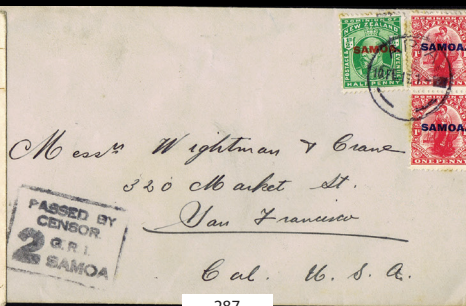 DOMINION OF
NEW ZEALAND
SAMOA.
POSTAGE &
HALF PENNY
SAMOA.
SAMOA.
ONE PENNY
Messrs Wightman & Crane
320 Market St.
San Francisco
Cal. U. S. A.
PASSED BY
CENSOR.
2 G.R.I.
SAMOA
287